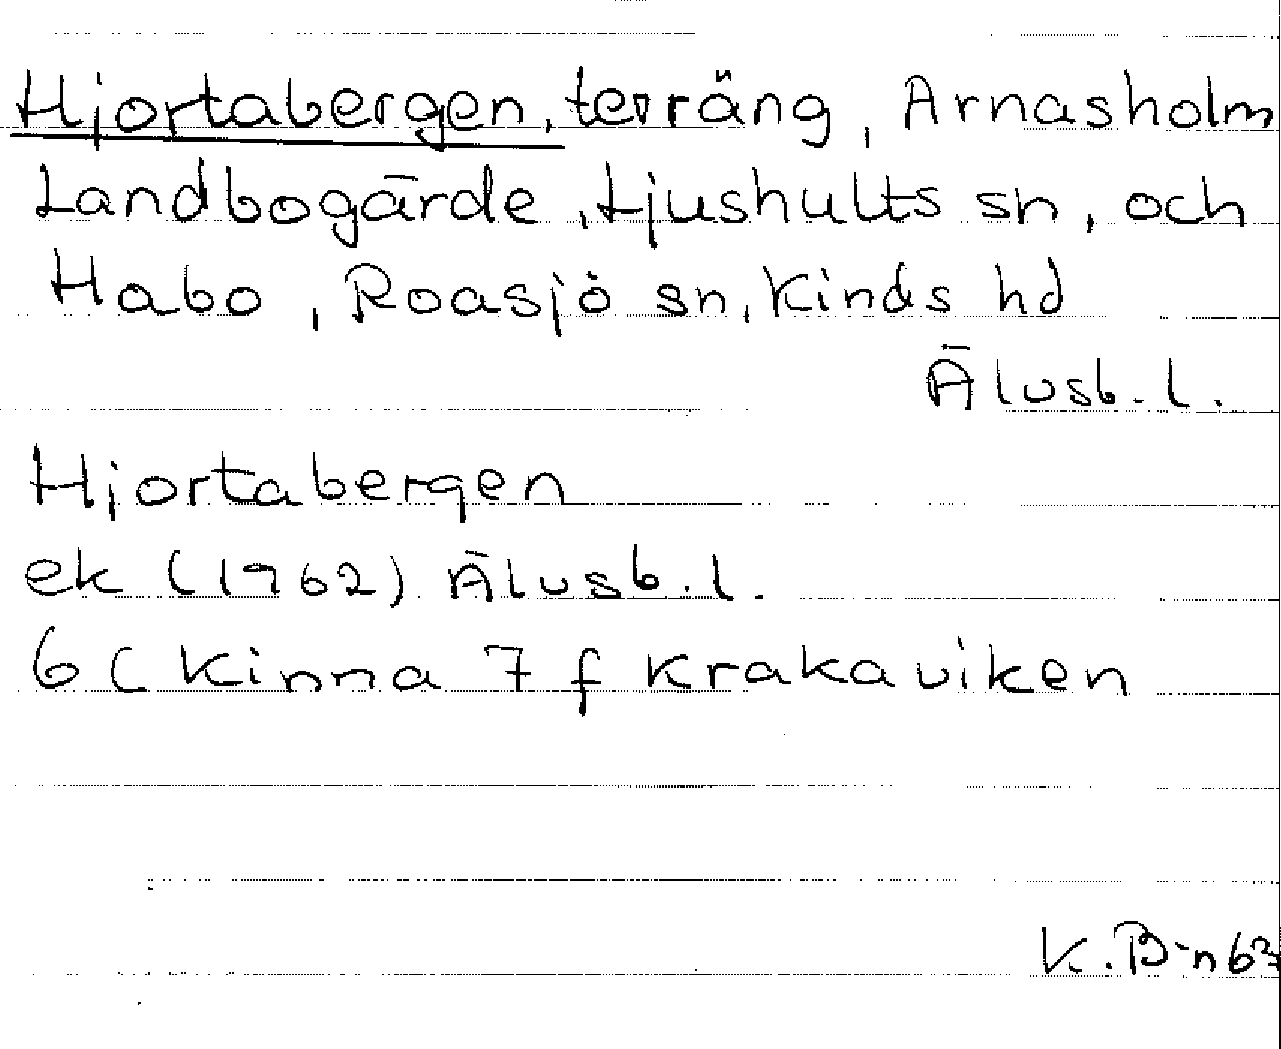 Hjortabergen, terräng, Arnasholm
Landbogärde, Ljushults sn, och
Habo, Roasjö sn, Kinds hd
Älvsb. l.
Hjortabergen
ek (1962) Älvsb. l.
6 C Kinna 7 f Krakaviken
K. B-n